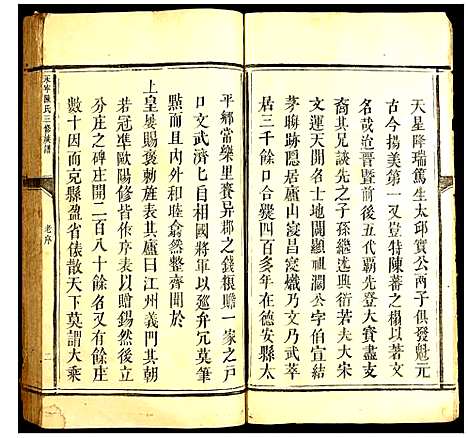 天星降瑞篤生太邱實公丙子俱發魁元
古今揚美第一又豈特陳蕃之榻以著文
名哉迨晉暨前後五代覇先登大寶盡支
裔其兄談先之子孫繼述與衍南北大宋
文運天開名士地闢顯祖闡公諱伯宣結
茅聯跡隱居廬山寖昌寖熾乃文乃武萃
居三千餘口合爨四百多年在德安縣太
平鄉常樂里賽异郡之錢粮贍一家之戶
口文武濟匕自相國將軍以廵升冗莫筆
上皇屡賜褒勅旌表其廬曰江州義門其朝
若冠準歐陽修皆作序表以贈錫然後立
分庄之碑庄開二百八十餘又有餘庄
數十因而克縣盈省俵散天下莫謂大乘
和睦翕然整齊聞於
永寧陳氏三修族譜
老序
二